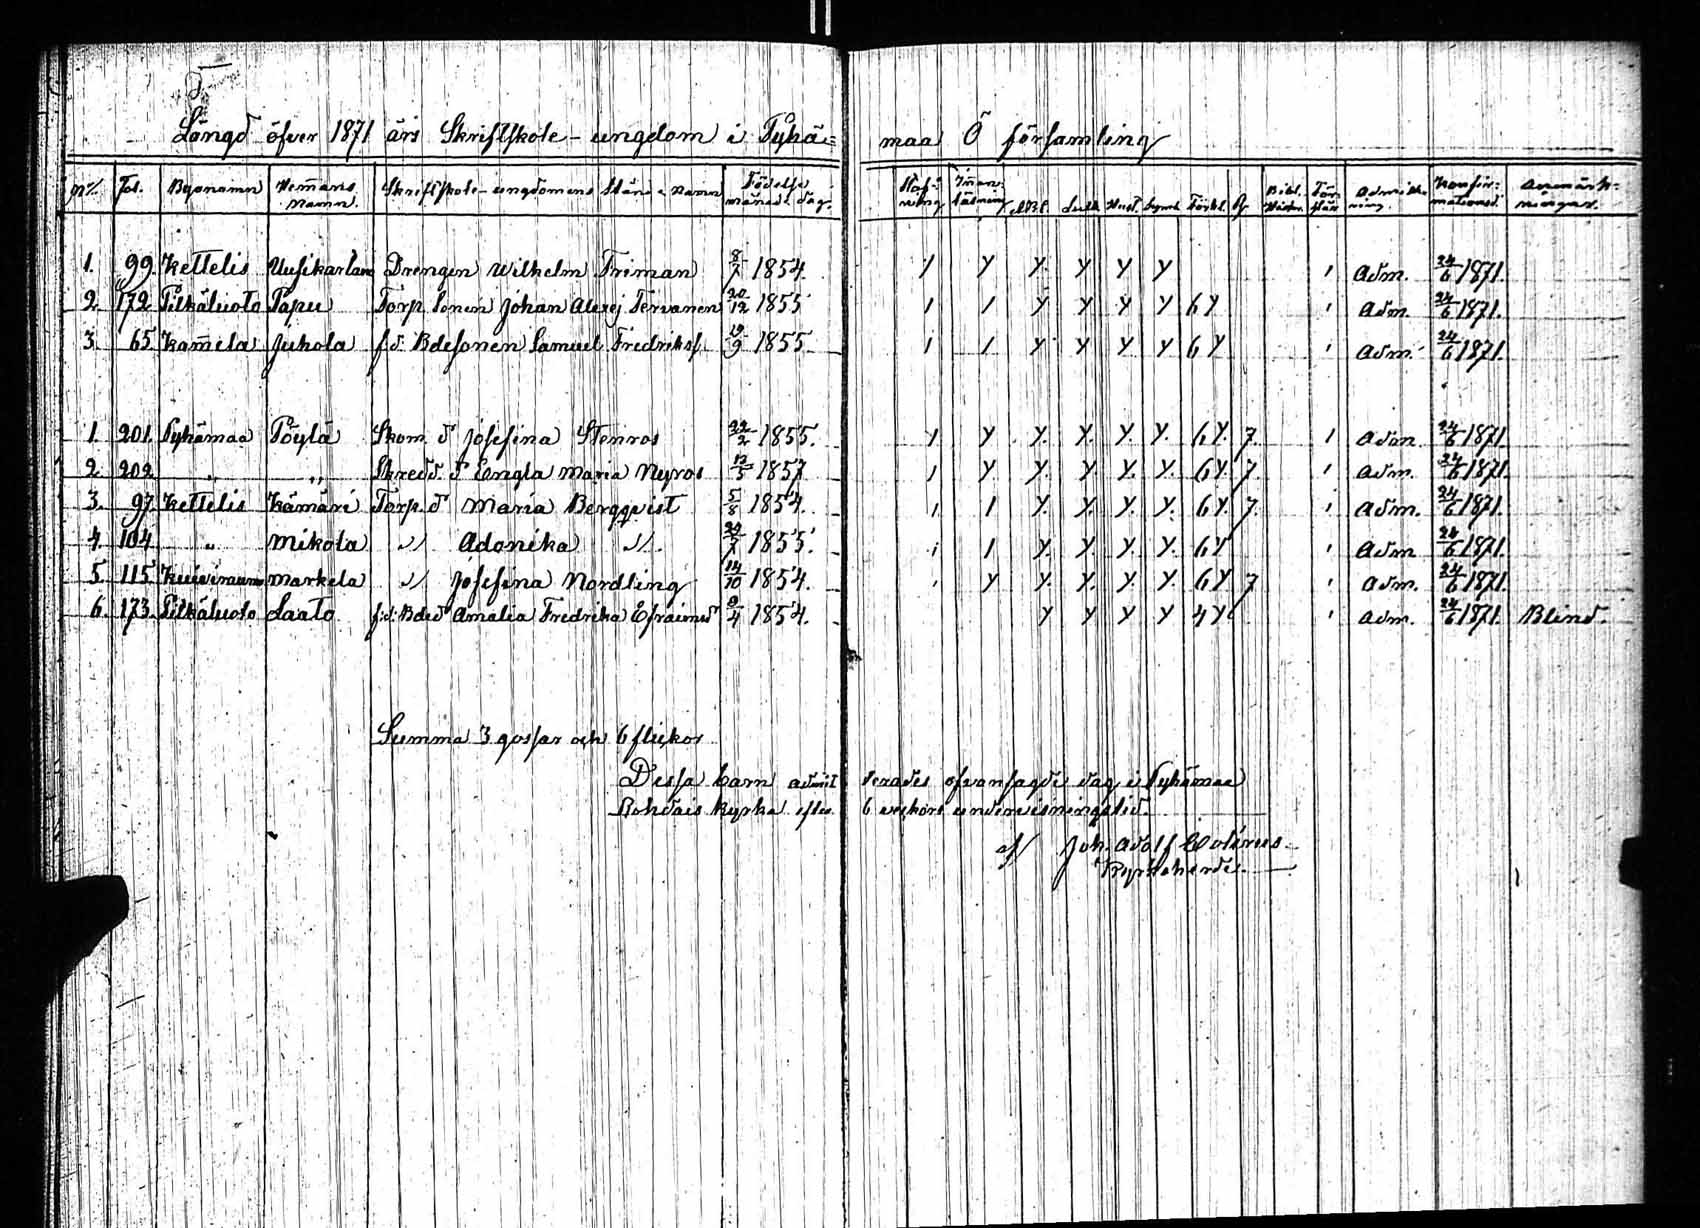 Längd öfver 1871 års Skriftskole-ungdom i Pyhä= maa Ö församling
No. Fol. Bynamn Hemans Namn. Skriftskole-ungdomens Stånd o. Namn Födelse månad. dag. Staf= ning Innan= läsning ABC. Luth. Hust. Symb. Förkl. Bibl. Histor. För= står Admitte= ning. Konfir= mationsd. Anmärk= ningar.
1. 99. Kettelis Uusikartano Drengen Wilhelm Friman 8/7 1854. 1 Y Y. Y Y Y 1 Adm. 24/6 1871.
2. 172. Pitkäluoto Papu Torp. Sonen Johan Alexej Tervanen 20/12 1855 1 1 Y Y Y Y 6 Y 1 Adm. 24/6 1871.
3. 65. Kammela Juhola f.d. Bdesonen Samuel Fredriksf. 19/9 1855 1 1 Y Y Y Y 6 Y 1 Adm. 24/6 1871.
1. 201. Pyhämaa Pöylä Skom. d. Josefina Stenros 22/2 1855. 1 Y Y. Y. Y. Y. 6 Y. 7. 1 Adm. 24/6 1871.
2. 202. " " Skredd. d. Engla Maria Nyros 13/5 1857 1 Y Y. Y. Y. Y. 6 Y 7. 1 Adm. 24/6 1871.
3. 97. Kettelis Kämäri Torp. d. Maria Bergqvist 5/8 1854. 1 1 Y. Y. Y. Y. 6 Y. 7. 1 Adm. 24/6 1871.
4. 104. " Mikola " Adonika " 1855. 1 1 Y. Y. Y. Y. 6 Y 1 Adm 24/6 1871.
5. 115. Markela " Josefina Nordling 14/10 1854. 1 Y Y. Y. Y. Y. 6 Y 7 1 Adm. 24/6 1871.
6. 173. Pitkäluoto Laato f.d. Bded. Amalia Fredrika Efraimsd. 9/4 1854. Y Y Y Y 4 Y 1 Adm. 24/6 1871. Blind.
Summa 3 gossar och 6 flickor
Dessa barn admit terades ofvansagde dag i Pyhämaa
Rohdais Kyrka efter 6 veckors undervisningstid.
af/ Joh. Adolf
Kyrkoherde.